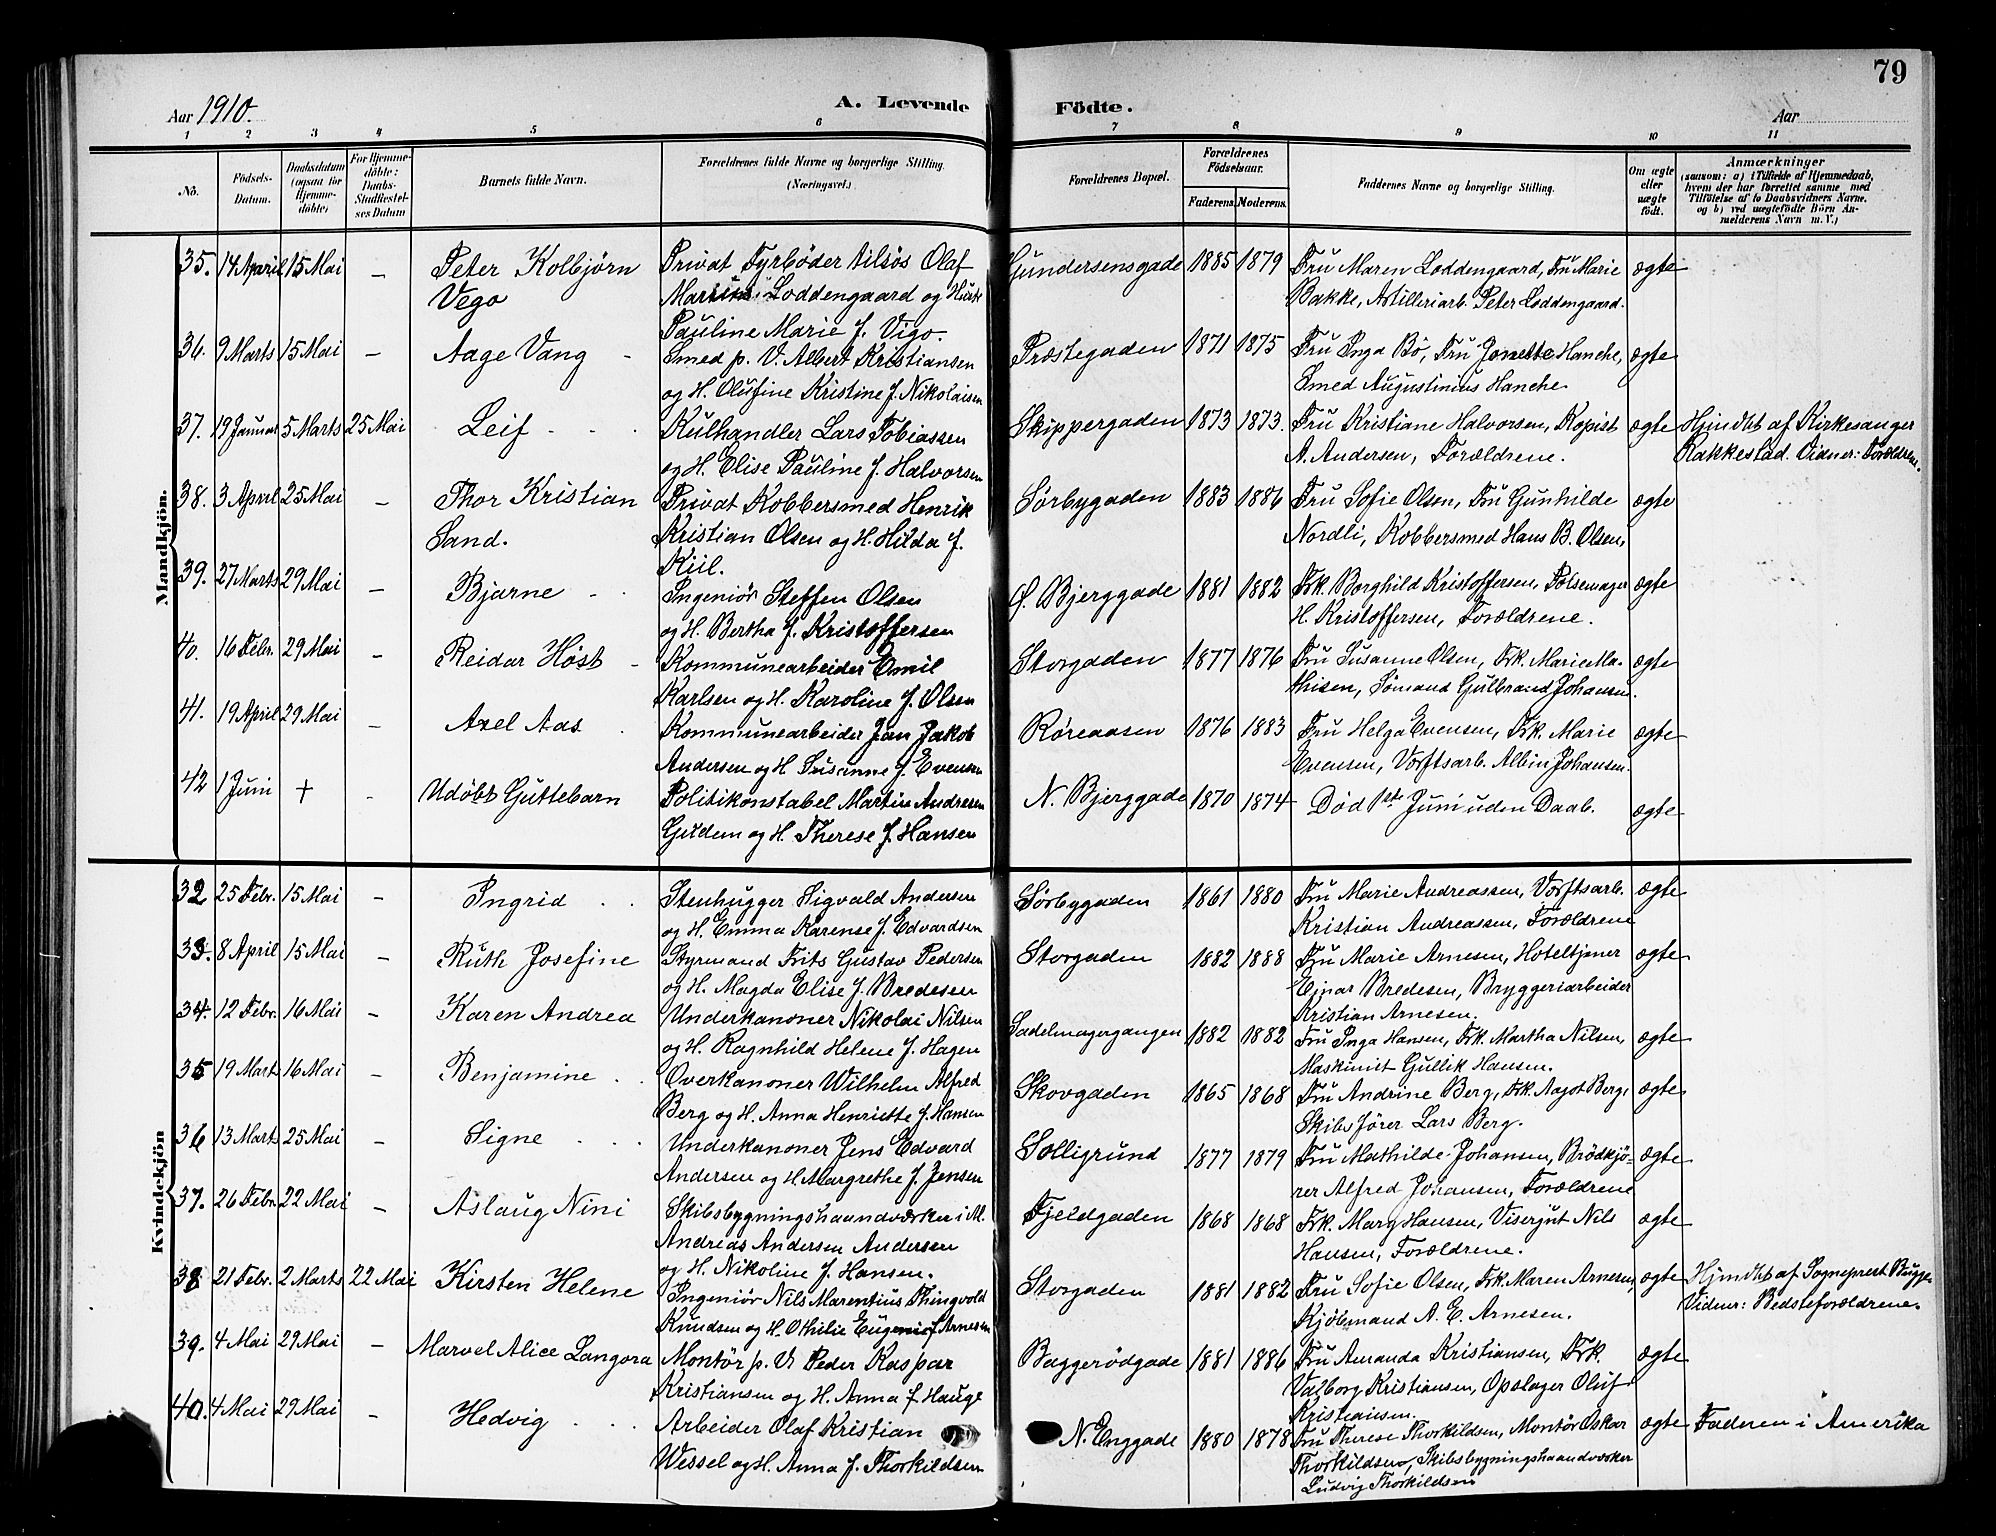 79
Aar 1910. A. Levende Födte. Aar
1 2 3 4 5 6 7 8 9 10 11
No. Födsels-Datum. Daabsdatum (ogsaa for Hjemmedöbte) For Hjemmedöbte: Daabs-Stadfestelses Datum Barnets fulde Navn. Forældrenes fulde Navne og borgerlige Stilling. (Næringsvei.) Forældrenes Bopæl. Forældrenes Födselsaar. Faderens. Moderens. Faddernes Navne og borgerlige Stilling. Om ægte eller uægte födt. Anmærkninger (saasom: a) i Tilfælde af Hjemmedaab, hvem der har forrettet samme, med Tilföielse af to Daabsvidners Navne, og b) ved uægtefödte Börn Anmelderens Navn m. V.)
Mandkjön.
35. 14 April 15 Mai – Peter Kolbjörn Privat Fyrböder tilsös Olaf Gundersensgade 1885 1879 Fru Maren Loddengaard, Fru Marie ægte
Vego Martin Loddengaard og Hustr Bakke, Artilleriarb. Peter Loddengaard.
Pauline Marie f. Vigo.
36. 9 Marts 15 Mai – Aage Vang Smed p. V. Albert Kristiansen Præstegaden 1871 1875 Fru Inga Bö, Fru Jonette Hanche, ægte
og H. Olufine Kristine f. Nikolaisen Smed Augustinius Hanche.
37. 19 Januar 5 Marts 25 Mai Leif Kulhandler Lars Tobiassen Skippergaden 1873 1873. Fru Kristiane Halvorsen, Kopist ægte Hjmdbt af Kirkesanger
og H. Elise Pauline f. Halvorsen A. Andersen, Forældrene. Rakkestad. Vidner: Forældrene.
38. 3 April 25 Mai – Thor Kristian Privat Kobbersmed Henrik Sörbygaden 1883 1886 Fru Sofie Olsen, Fru Gunhilde ægte
Sand. Kristian Olsen og H. Hilda f. Nordli, Kobbersmed Hans B. Olsen,
Kiil.
39. 27 Marts 29 Mai – Bjarne Ingeniör Steffen Olsen Ø. Bjerggade 1881 1882 Frk. Borghild Kristoffersen, Pölsemager ægte
og H. Bertha f. Kristoffersen H. Kristoffersen, Forældrene.
40. 16 Febr. 29 Mai – Reidar Höst Kommunearbeider Emil Storgaden 1877 1876 Fru Susanne Olsen, Frk. Marie Ma- ægte
Karlsen og H. Karoline f. Olsen thisen, Sömand Gulbrand Johansen.
41. 19 April 29 Mai – Axel Aas Kommunearbeider Jan Jakob Röreaasen 1876 1883 Fru Helga Evensen, Frk. Marie ægte
Andersen og H. Susanne f. Evensen Evensen, Værftsarb. Albin Johansen.
42 1 Juni + - Udöbt Guttebarn Politikonstabel Martin Andresen N. Bjerggade 1870 1874 Död 1ste Juni uden Daab. ægte
Gulden og H. Therese f. Hansen
Kvindekjön
32 25 Febr. 15 Mai – Ingrid Stenhugger Sigvald Andersen Sörbygaden 1861 1880 Fru Marie Andreassen, Værftsarb. ægte
og H. Emma Karense f. Edvardsen Kristian Andreassen, Forældrene
33. 8 April 15 Mai – Ruth Josefine Styrmand Frits Gustav Pedersen Storgaden 1882 1888 Fru Marie Arnesen, Hoteltjener ægte
og H. Magda Elise f. Bredesen Ejnar Bredesen, Bryggeriarbeider
Kristian Arnesen.
34. 12 Febr. 16 Mai – Karen Andrea Underkanoner Nikolai Nilsen Sadelmagergangen 1882 1882 Fru Inga Hansen, Frk. Martha Nilsen, ægte
og H. Ragnhild Helene f. Hagen Maskinist Gullik Hansen.
35 19 Marts 16 Mai – Benjamine Overkanoner Wilhelm Alfred Skovgaden 1865 1868 Fru Andrine Berg, Frk. Aagot Berg, ægte
Berg og H. Anna Henriette f. Hansen Skibsförer Lars Berg.
36 13 Marts 25 Mai – Signe Underkanoner Jens Edvard Solligrund 1877 1879 Fru Mathilde Johansen, Brödkjö- ægte
Andersen og H. Margrethe f. Jensen rer Alfred Johansen, Forældrene
37. 26 Febr. 22 Mai – Aslaug Nini Skibsbygningshaandværker i M. Fjeldgaden 1868 1868 Frk. Mary Hansen, Visergut Nils ægte
Andreas Andersen Andersen Hansen, Forældrene.
og H. Nikoline f. Hansen.
38 21 Febr. 2 Marts 22 Mai Kirsten Helene Ingeniör Nils Marentius Thingvold Storgaden 1881 1882 Fru Sofie Olsen, Frk. Maren Arnesen, ægte Hjmdbt af Sogneprest Bugge.
Knudsen og H. Othilie Eugenie f. Arnesen Kjöbmand A. E. Arnesen. Vidner: Bedsteforældrene.
39. 4 Mai 29 Mai – Marvel Alice Langora Montör p. V. Peder Kaspar Baggerödgade 1881 1886 Fru Amanda Kristiansen, Frk. ægte
Kristiansen og H. Anna f. Hauge Valborg Kristiansen, Opslager Oluf
Kristiansen.
40. 4 Mai 29 Mai – Hedvig Arbeider Olaf Kristian N. Enggade 1880 1878 Fru Therese Thorkildsen, Montör Oskar ægte Faderen i Amerika
Wessel og H. Anna f. Thorkildsen Thorkildsen, Skibsbygningshaandværker
Ludvig Thorkildsen